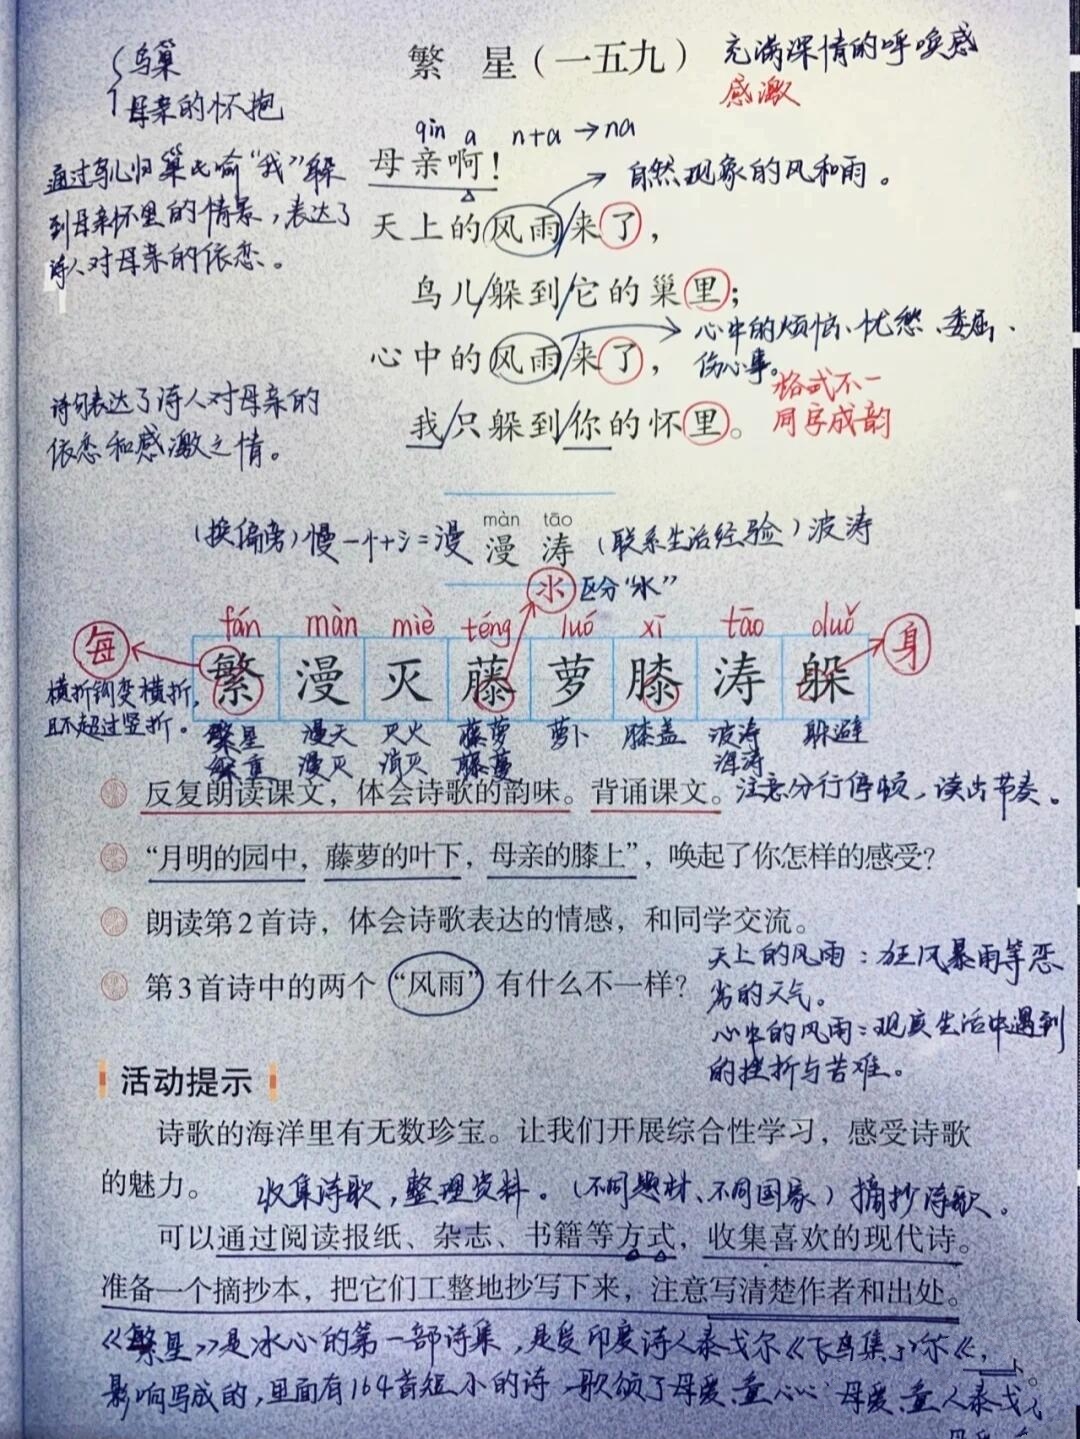 鸟巢
母亲的怀抱
繁 星（一五九）
充满深情的呼唤感
感激
qīn a n+a→na
母亲啊！
自然现象的风和雨。
通过鸟儿归巢比喻“我”躲
到母亲怀里的情景，表达了
诗人对母亲的依恋。
天上的风雨/来了，
鸟儿/躲到/它的巢里；
心中的风雨/来了，
心中的烦恼、忧愁、委屈、
伤心事。
格式不一
同字成韵
我/只躲到/你的怀里。
诗句表达了诗人对母亲的
依恋和感激之情。
màn tāo
（换偏旁）慢-忄+氵=漫 漫 涛 （联系生活经验）波涛
氺 区分“水”
fán màn miè téng luó xī tāo duǒ
每 繁 漫 灭 藤 萝 膝 涛 躲 身
横折钩变横折，
且不超过竖折。
繁星 漫天 灭火 藤萝 萝卜 膝盖 波涛 躲避
繁重 漫灭 消灭 藤蔓 海涛
反复朗读课文，体会诗歌的韵味。背诵课文。注意分行停顿，读出节奏。
“月明的园中，藤萝的叶下，母亲的膝上”，唤起了你怎样的感受？
朗读第2首诗，体会诗歌表达的情感，和同学交流。
第3首诗中的两个“风雨”有什么不一样？
天上的风雨：狂风暴雨等恶
劣的天气。
心中的风雨：现实生活中遇到
的挫折与苦难。
活动提示
诗歌的海洋里有无数珍宝。让我们开展综合性学习，感受诗歌
的魅力。
收集诗歌，整理资料。（不同题材、不同国家）摘抄诗歌。
可以通过阅读报纸、杂志、书籍等方式，收集喜欢的现代诗。
准备一个摘抄本，把它们工整地抄写下来，注意写清楚作者和出处。
《繁星》是冰心的第一部诗集，是受印度诗人泰戈尔《飞鸟集》
影响写成的，里面有164首短小的诗，歌颂了母爱、童心 母爱、童 人泰戈